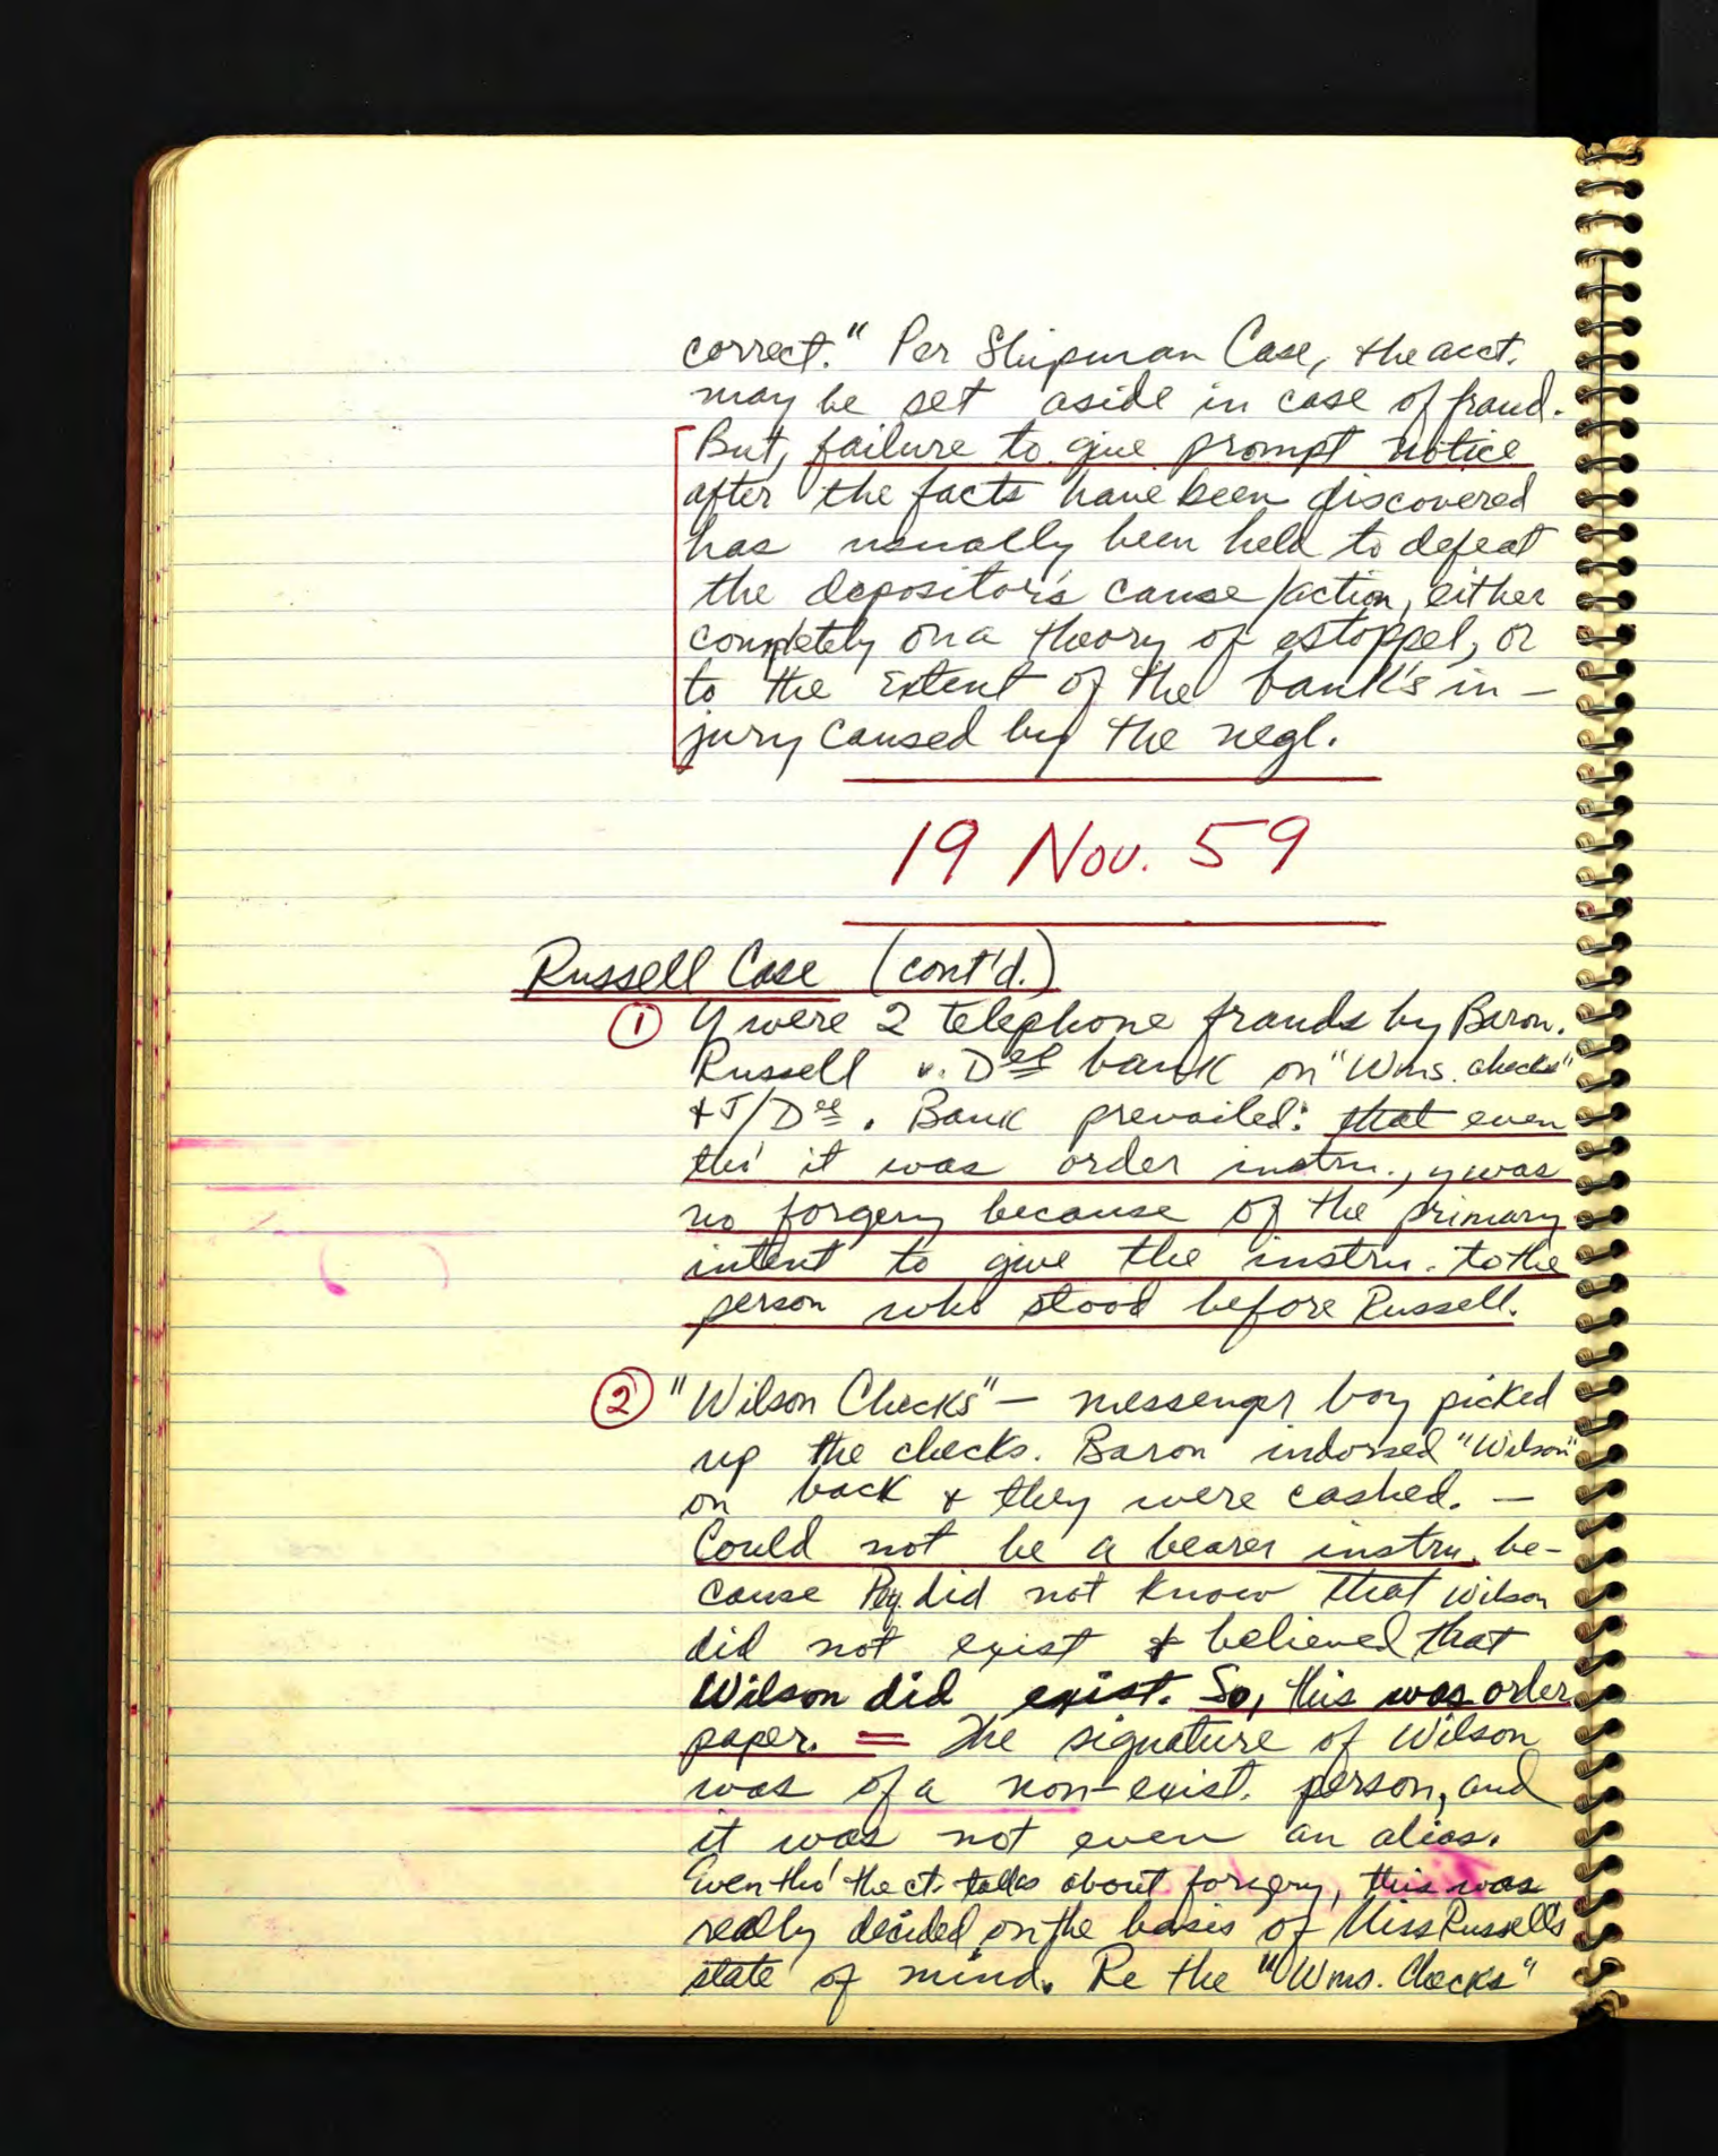 correct." Per Shipman Case, the acct.
may be set aside in case of fraud.
But, failure to give prompt notice
after the facts have been discovered
has usually been held to defeat
the depositor's cause/action, either
completely on a theory of estoppel, or
to the extent of the bank's in-
jury caused by the negl.
19 Nov. 59
Russell Case (cont'd.)
① Y were 2 telephone frauds by Baron.
Russell v. Des bank on "Wms. checks"
+ J/Des. Bank prevailed: that even
tho' it was order instru., y was
no forgery because of the primary
intent to give the instru. to the
person who stood before Russell.
② "Wilson Checks" — messenger boy picked
up the checks. Baron indorsed "Wilson"
on back + they were cashed. —
Could not be a bearer instru. be-
cause did not know that Wilson
did not exist + believed that
Wilson did exist. So, this was order
paper. = The signature of Wilson
was of a non-exist. person, and
it was not even an alias.
Even tho' the ct. talks about forgery, this was
really decided on the basis of Miss Russell's
state of mind. Re the "Wms. Checks"